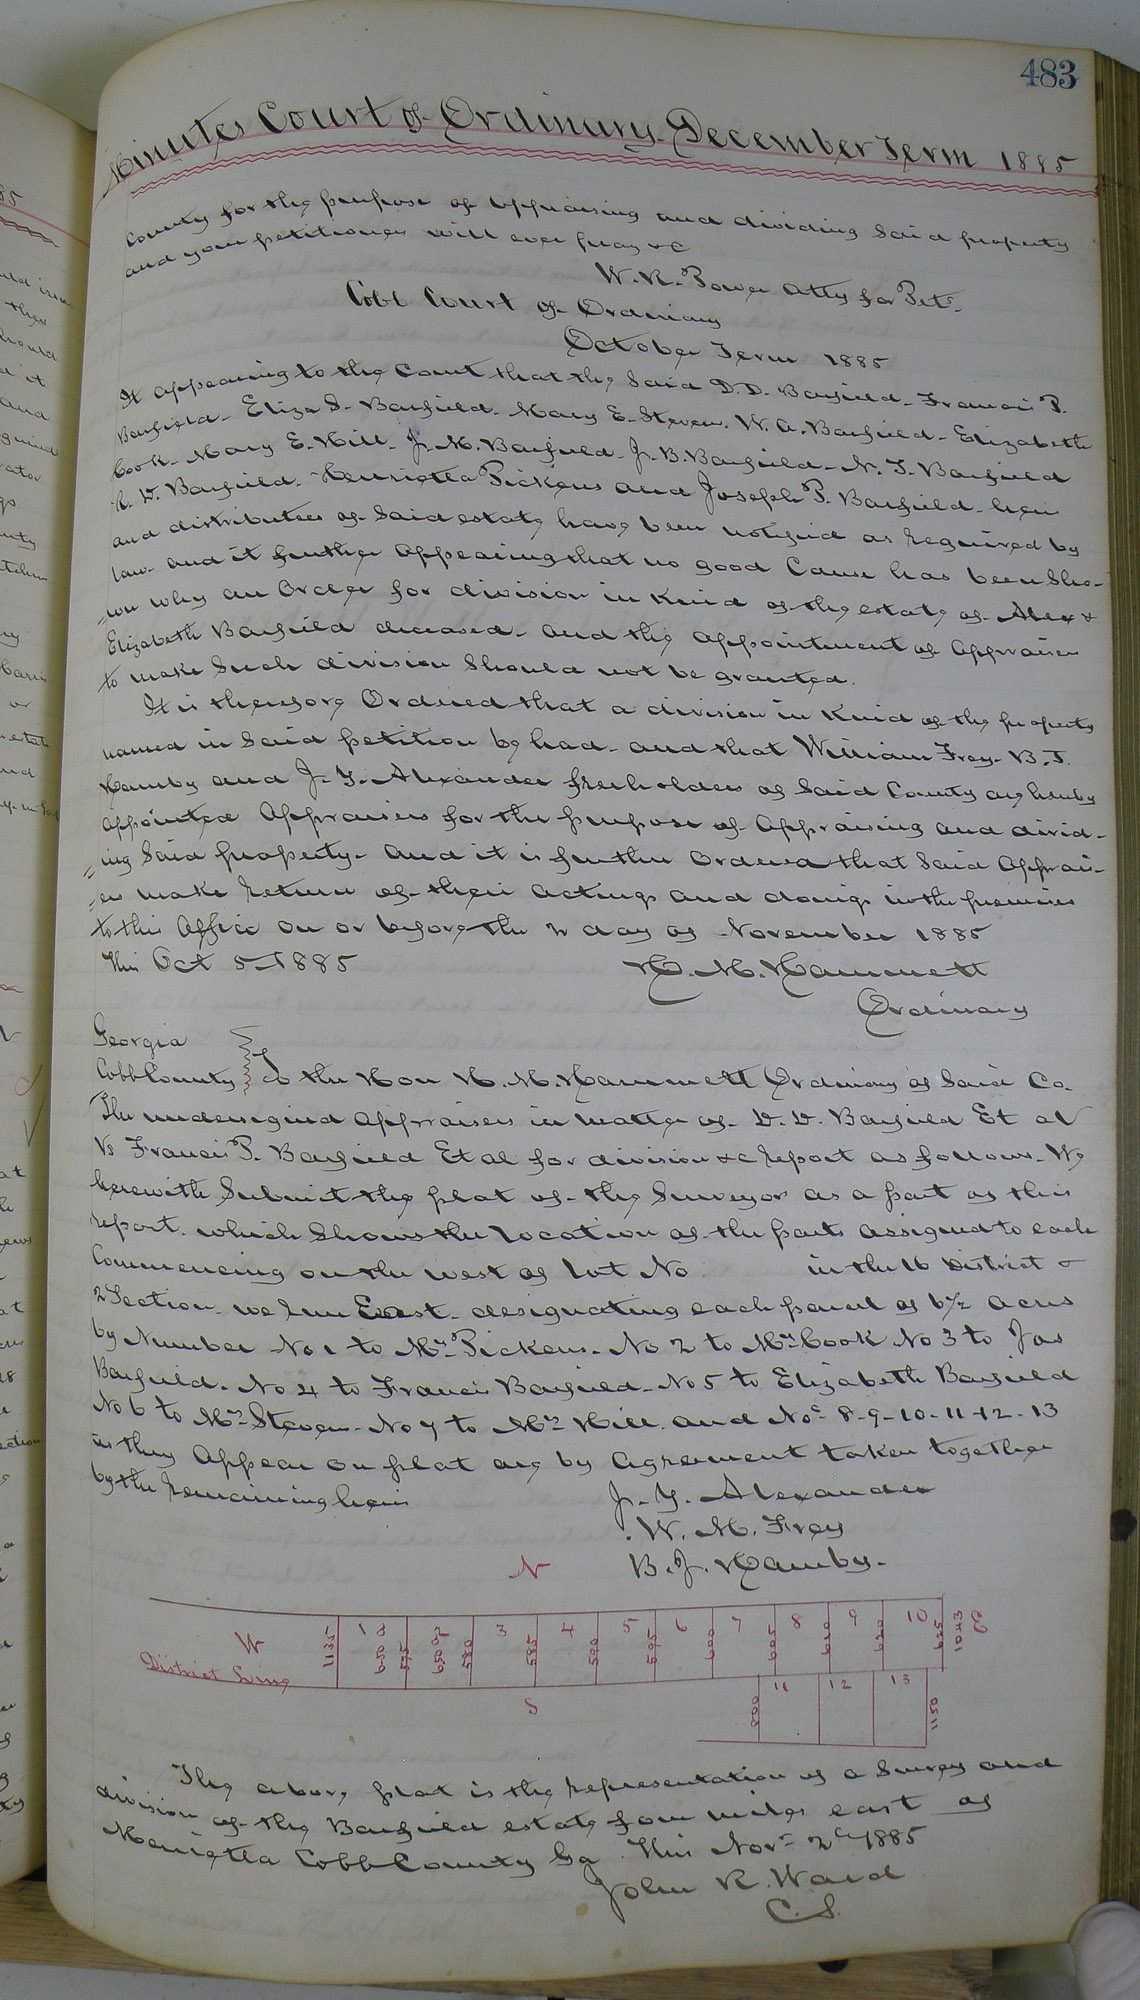 483
Minutes Court of Ordinary December Term 1885
County for the purpose of appraising and dividing said property
and your petitioner will ever pray &c
W. R. Power Atty for Pets.
Cobb Court of Ordinary
October Term 1885
It appearing to the Court that the said D. D. Barfield - Francis P.
Barfield - Eliza S. Barfield - Mary E. Steven. W. A. Barfield - Elizabeth
Cook - Mary E. Hill. J. M. Barfield - J. B. Barfield - N. T. Barfield
R. D. Barfield - Henrietta Pickens and Joseph P. Barfield - heirs
and distributees of said estate have been notified as required by
law - and it further appearing that no good Cause has been Sho-
=wn why an Order for division in Kind of the estate of Alex &
Elizabeth Barfield deceased - and the appointment of appraisers
to make such division should not be granted.
It is therefore Ordered that a division in Kind of the property
named in said petition be had - and that William Frey - B. J.
Hamby and J. G. Alexander freeholders of said County are hereby
appointed Appraisers for the purpose of appraising and divid-
=ing said property - and it is further Ordered that said apprai-
=ers make return of their actings and doings in the premises
to this Office on or before the 2 day of November 1885
This Oct 5th 1885 H. M. Hammett
Ordinary
Georgia
Cobb County To the Hon H. M. Hammett Ordinary of said Co.
The undersigned appraisers in matter of - D. D. Barfield Et al
Vs Francis P. Barfield Et al for division &c report as follows - We
herewith submit the plat of the Surveyor as a part of this
report. which shows the location of the parts assigned to each
Commencing on the west of lot No in the 16 District &
2 Section. we run East designating each parcel of 6½ acres
by Number No 1 to Mrs Pickens - No 2 to Mrs Cook No 3 to Jas
Barfield. No 4 to Francis Barfield - No 5 to Elizabeth Barfield
No 6 to Mrs Steven - No 7 to Mrs Hill and Nos 8-9-10-11-12-13
as they appear on plat are by agreement taken together
by the remaining heirs
J. G. Alexander
W. M. Frey
B. J. Hamby.
N
W 1135 1 650 575 2 650 580 3 585 4 590 5 595 6 600 7 605 8 610 9 620 10 625 1043 E
District Line
S
800 11 12 13 1150
The above plat is the representation of a Survey and
division of the Barfield estate four miles east of
Marietta Cobb County Ga This Nov 2d 1885
John R. Ward
C. S.